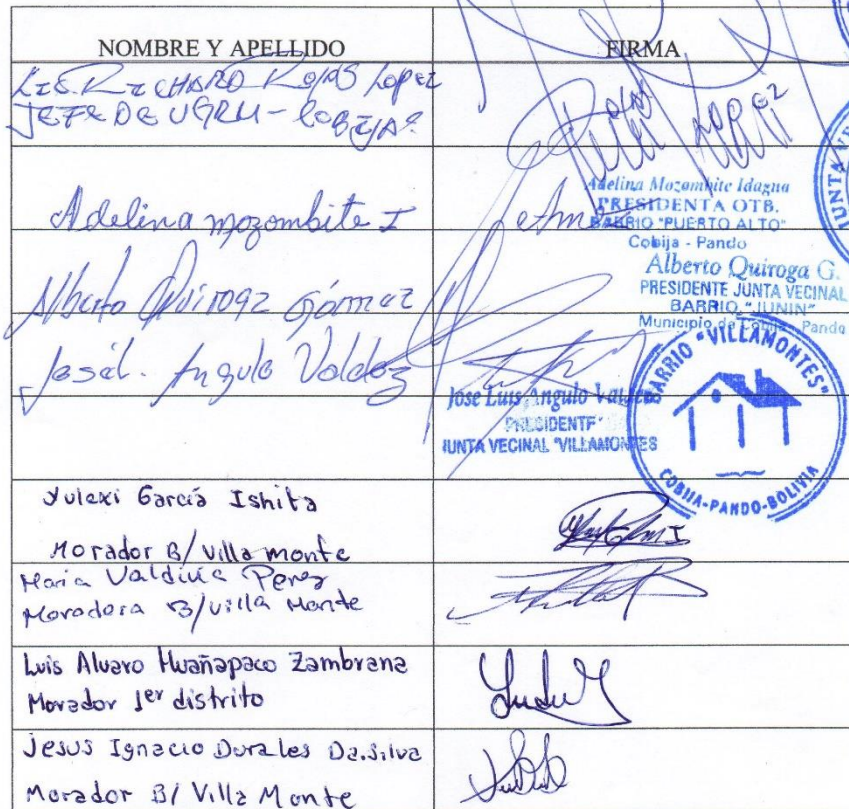 NOMBRE Y APELLIDO
FIRMA
LIC. RICHARD Rojas Lopez
JEFE DE UGRM - COBIJA.
Rojas Lopez
Adelina mozombite I
Adelina Mozombite Idagua
PRESIDENTA OTB.
BARRIO "PUERTO ALTO"
Cobija - Pando
Alberto Quiroga Gómez
Alberto Quiroga G.
PRESIDENTE JUNTA VECINAL
BARRIO "JUNIN"
Municipio de Cobija - Pando
José L. Angulo Valdez
Jose Luis Angulo
PRESIDENTE
JUNTA VECINAL "VILLAMONTES
BARRIO "VILLAMONTES"
COBIJA-PANDO-BOLIVIA
JUNTA
Yulexi García Ishita
Morador B/ villa monte
Maria Valdivia Perez
Moradora B/villa Monte
Luis Alvaro Huañapaco Zambrana
Morador 1er distrito
Jesus Ignacio Durales Da.silva
Morador B/ Villa Monte